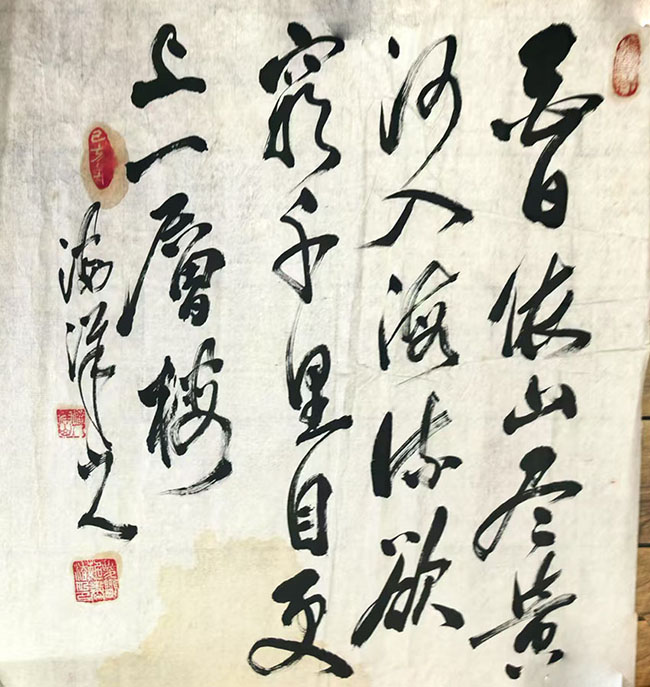 白日依山尽黄
河入海流欲
窮千里目更
上一層楼
己亥年
海洋